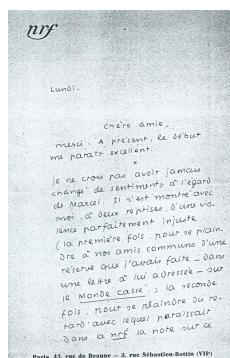 nrf
Lundi.
Chère amie,
merci. A présent, le début
me paraît excellent.
*
Je ne crois pas avoir jamais
changé de sentiments à l'égard
de Marcel. Il s'est montré avec
moi, à deux reprises, d'une vio-
lence parfaitement injuste
(la première fois, pour se plain-
dre à nos amis communs d'une
réserve que j'avais faite - dans
une lettre à lui adressée - sur
le Monde cassé; la seconde
fois, pour se plaindre du re-
tard avec lequel paraissait
dans la nrf la note sur ce
Paris, 43, rue de Beaune — 5, rue Sébastien-Bottin (VIIe)